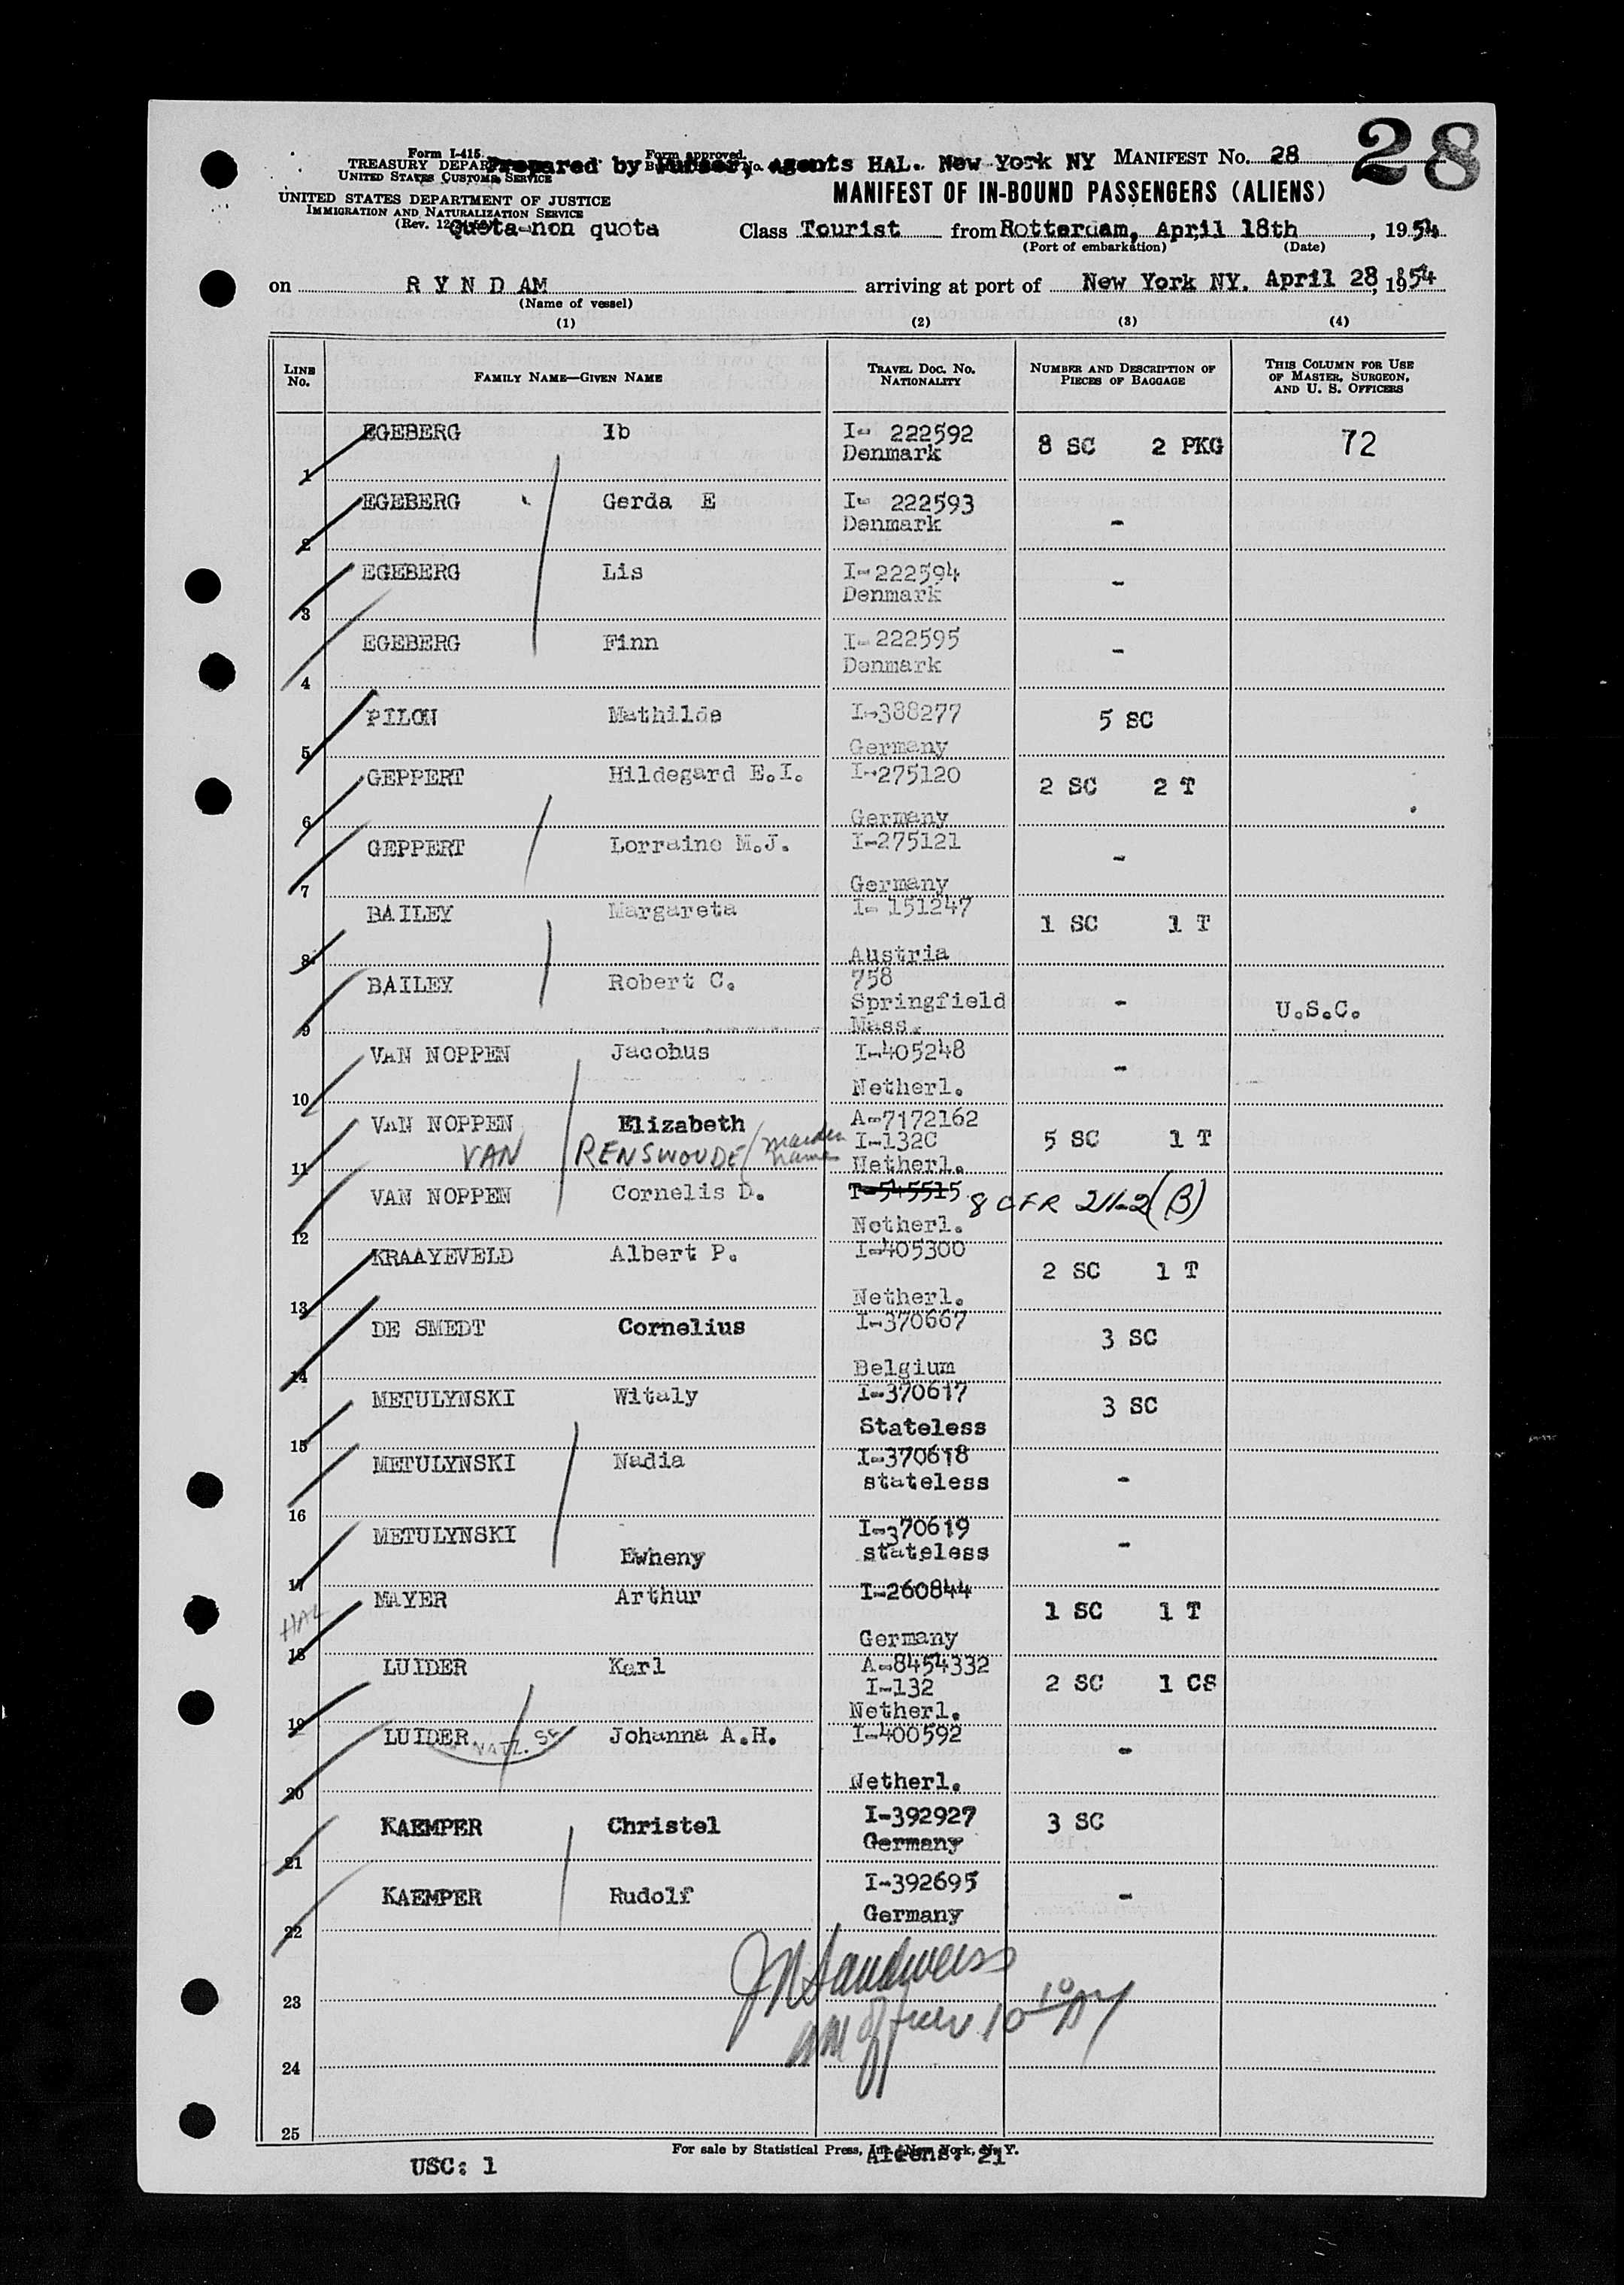 28
Form I-415
TREASURY DEPAR
UNITED STATES CUSTOMS SERVICE
Form approved.
Prepared by agents HAL. New York NY
MANIFEST No. 28
UNITED STATES DEPARTMENT OF JUSTICE
IMMIGRATION AND NATURALIZATION SERVICE
MANIFEST OF IN-BOUND PASSENGERS (ALIENS)
Quota-non quota
Class Tourist from Rotterdam, April 18th, 1954
(Port of embarkation) (Date)
on R Y N D AM arriving at port of New York NY. April 28, 1954
(Name of vessel)
(1) (2) (3) (4)
LINE No. FAMILY NAME—GIVEN NAME TRAVEL DOC. No. NATIONALITY NUMBER AND DESCRIPTION OF PIECES OF BAGGAGE THIS COLUMN FOR USE OF MASTER, SURGEON, AND U. S. OFFICERS
1 EGEBERG Ib I- 222592 Denmark 8 SC 2 PKG 72
2 EGEBERG Gerda E I- 222593 Denmark -
3 EGEBERG Lis I-222594 Denmark -
4 EGEBERG Finn I-222595 Denmark -
5 PILON Mathilde I-388277 Germany 5 SC
6 GEPPERT Hildegard E.I. I-275120 Germany 2 SC 2 T
7 GEPPERT Lorraine M.J. I-275121 Germany -
8 BAILEY Margareta I- 151247 Austria 1 SC 1 T
9 BAILEY Robert C. 758 Springfield Mass. - U.S.C.
10 VAN NOPPEN Jacobus I-405248 Netherl. -
11 VAN NOPPEN Elizabeth A-7172162 I-132C Netherl. 5 SC 1 T
VAN RENSWOUDE/maiden name
12 VAN NOPPEN Cornelis D. T-545515 Netherl. 8 CFR 211-2(B)
13 KRAAYEVELD Albert P. I-405300 Netherl. 2 SC 1 T
14 DE SMEDT Cornelius I-370667 Belgium 3 SC
15 METULYNSKI Witaly I-370617 Stateless 3 SC
16 METULYNSKI Nadia I-370618 stateless -
17 METULYNSKI Ewheny I-370619 stateless -
HAL
18 MAYER Arthur I-260844 Germany 1 SC 1 T
19 LUIDER Karl A-8454332 I-132 Netherl. 2 SC 1 CS
20 LUIDER Johanna A.H. I-400592 Netherl. -
21 KAEMPER Christel I-392927 Germany 3 SC
22 KAEMPER Rudolf I-392695 Germany -
JR Sandweiss
23
24
25
For sale by Statistical Press, Inc. New York, N. Y.
USC: 1 Aliens: 21